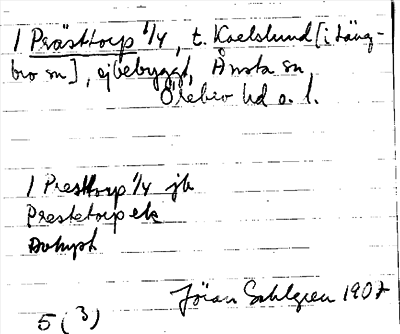 1 Prästtorp 1/4, t. Karlslund [i Läng-
bro sn], ej bebyggt, Ånsta sn
Örebro hd o. l.
1 Presttorp 1/4 jb
Prestetorp ek
Avhyst
Jöran Sahlgren 1907
5 (3)